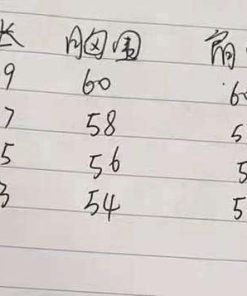 长 胸围 肩
9 60 60
7 58 5
5 56 5
3 54 5